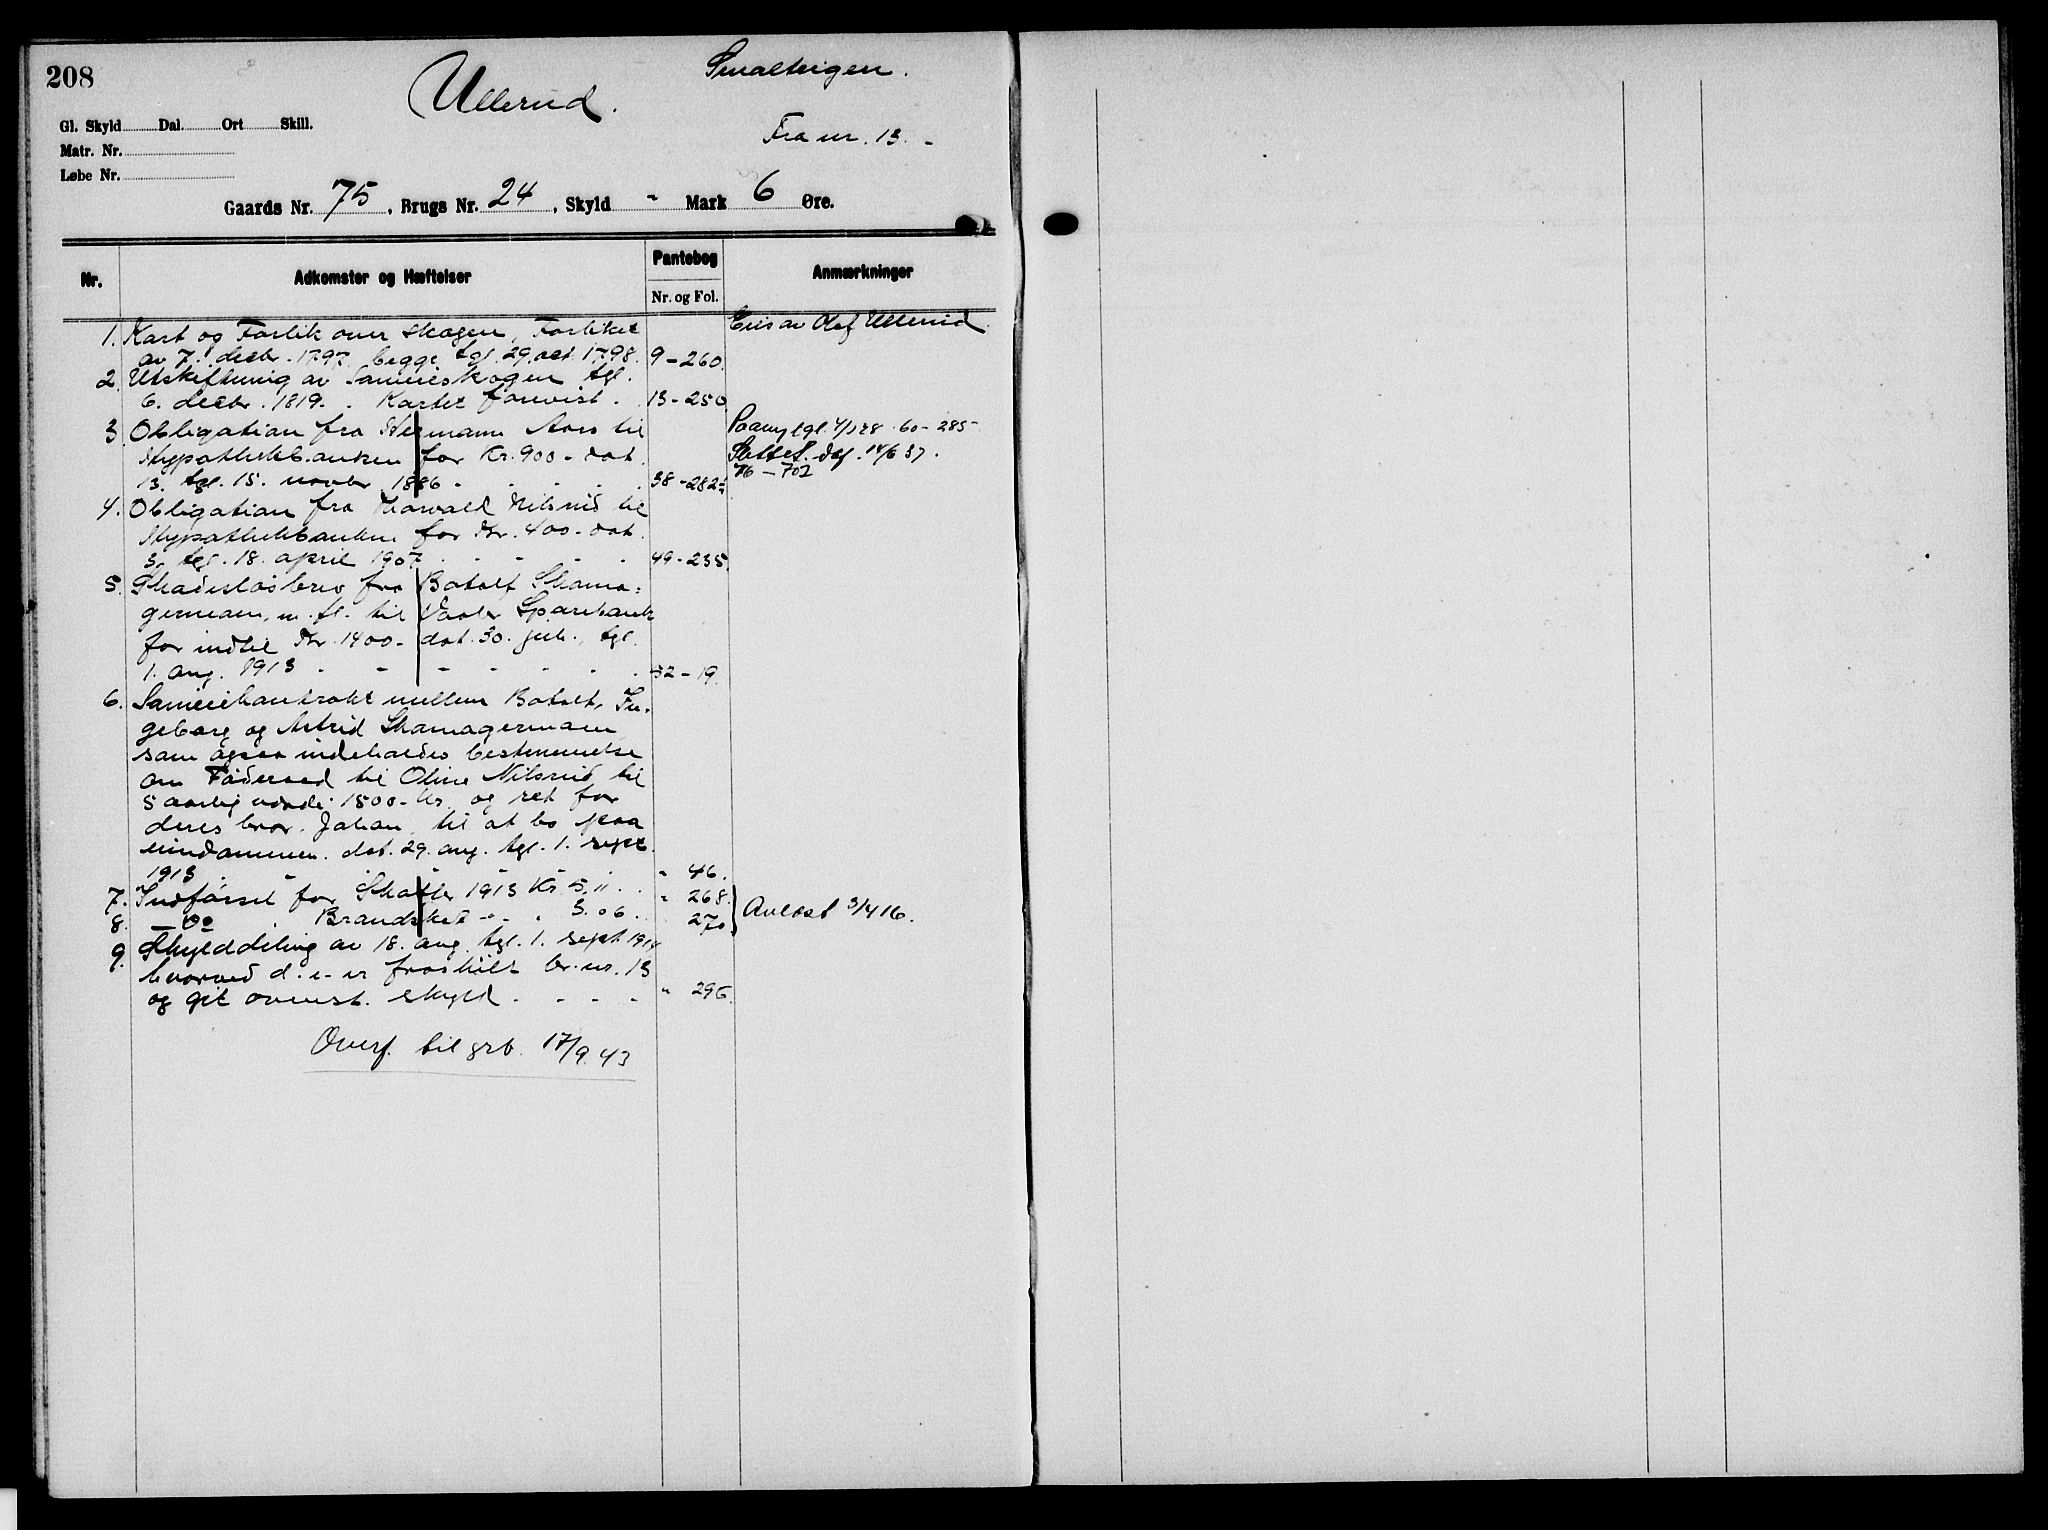 208
Ullerud.
Smalteigen.
Gl. Skyld Dal. Ort Skill.
Matr. Nr.
Løbe Nr.
Fra nr. 13. -
Gaards Nr. 75, Brugs Nr. 24, Skyld - Mark 6 Øre.
Nr. Adkomster og Hæftelser Pantebog Nr. og Fol. Anmærkninger
Eies av Olaf Ullerud.
1. Kart og Forlik over skogen, Forliket
av 7. decbr. 1797, begge tgl. 29. oct. 1798. 9-260.
2. Utskiftning av Sameieskogen tgl.
6. decbr. 1819. . Kartet forevist. . 13-250
3. Obligation fra Hermann Aars til
Hypothekbanken for Kr. 900- dat.
13. tgl. 15. novbr 1886 . . . . 38-282
Paany tgl. 4/1 28. 60-285
Slettet. def. 14/6 37.
76-702
4. Obligation fra Thorvald Nilsrud til
Hypothekbanken for Kr. 400- dat.
3. tgl. 18. april 1907. - - - . 49-235.
5. Skadesløsbrev fra Botolf Skoma-
germoen, m. fl. til Vaaler Sparebank
for indtil Kr. 1400- dat. 30. juli, tgl.
1. aug. 1913 - - - - - . 52-19.
6. Sameiekontrakt mellem Botolf, In-
geborg og Astrid Skomagermoen
som ogsaa indeholder bestemmelse
om Føderaad til Oline Nilsrud til
5 aarlig værdi 1500- kr. og ret for
deres bror Johan til at bo paa
eiendommen. dat. 29. aug. tgl. 1. sept.
1913 " 46.
7. Indførsel for Skatter 1913 Kr 5. " . . " 268.
8. - Do . Brandskat - - . 3.06 . 270
Avløst 3/4 16.
9. Skylddeling av 18. aug. tgl. 1. sept 1914
hvorved d. e. er fraskilt br. nr. 13
og git ovenst. skyld . - - - " 296.
Overf. til grb. 17/9.43